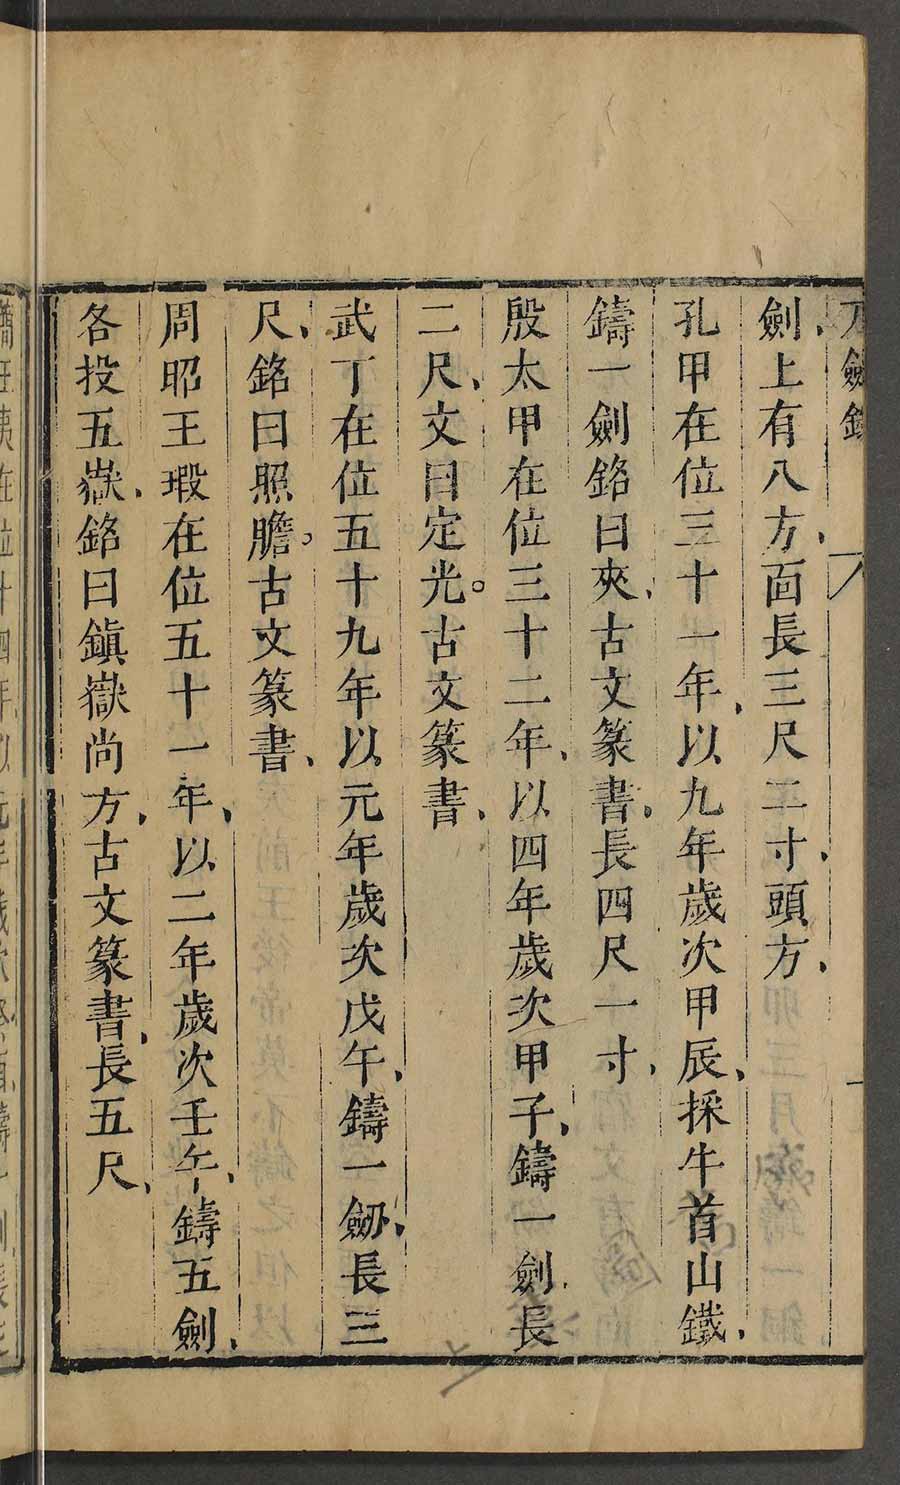 刀劍錄
劍上有八方面長三尺二寸頭方
孔甲在位三十一年以九年歲次甲辰採牛首山鐵
鑄一劍銘曰夾古文篆書長四尺一寸
殷太甲在位三十二年以四年歲次甲子鑄一劍長
二尺文曰定光古文篆書
武丁在位五十九年以元年歲次戊午鑄一劒長三
尺銘曰照膽古文篆書
周昭王瑕在位五十一年以二年歲次壬午鑄五劍
各投五嶽銘曰鎮嶽尚方古文篆書長五尺